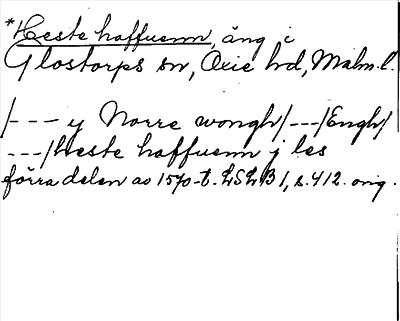 *Heste haffuenn, äng i
Glostorps sn, Oxie hd, Malm.l.
/--- y Norre wongh/---/Engh/
---/Heste haffuenn j les
förra delen av 1570-t. LSLB 1, s. 412. orig.